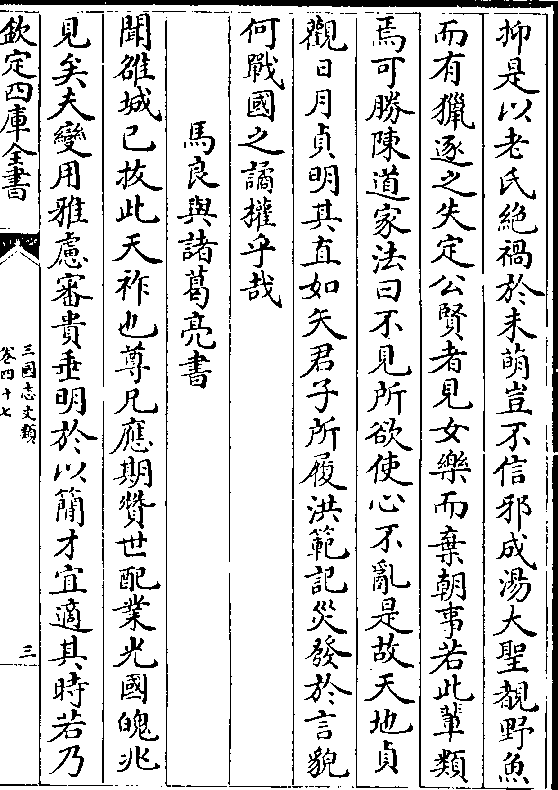 抑是以老氏絶禍於未萌豈不信邪成湯大聖覩野魚
而有獵逐之失定公賢者見女樂而棄朝事若此輩類
焉可勝陳道家法曰不見所欲使心不亂是故天地貞
觀日月貞明其直如矢君子所履洪範記災發於言貌
何戰國之譎權乎哉
馬良與諸葛亮書
聞雒城已拔此天祚也尊兄應期贊世配業光國魄兆
見矣夫變用雅慮審貴垂明於以簡才宜適其時若乃
欽定四庫全書
三國志文類
卷四十七
三